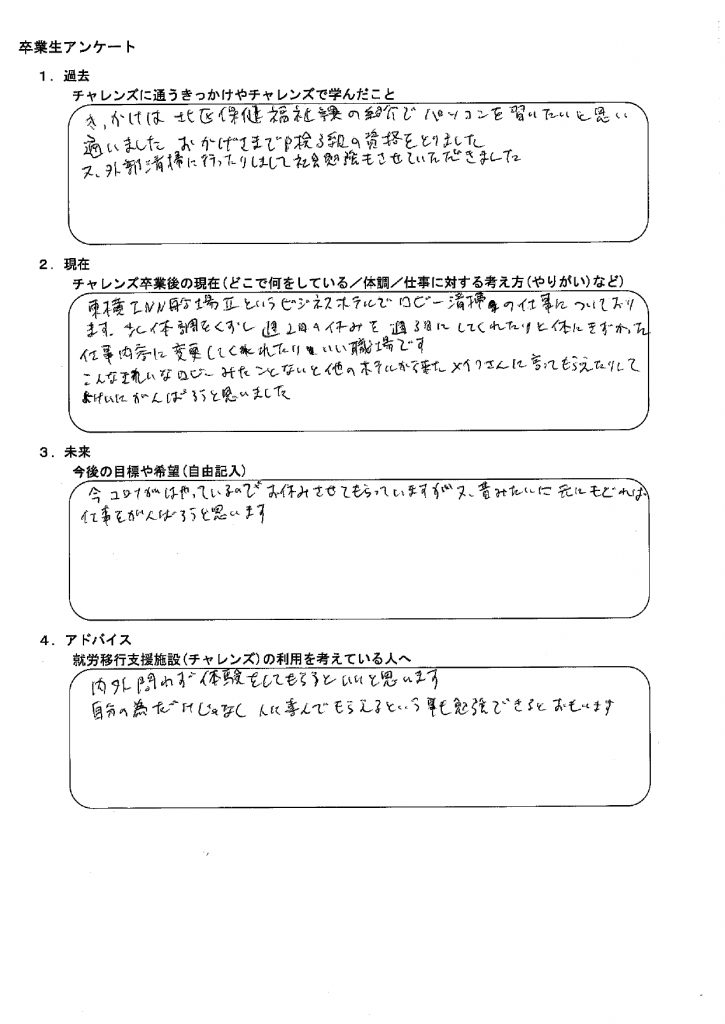 卒業生アンケート
1．過去
チャレンズに通うきっかけやチャレンズで学んだこと
きっかけは 北区保健福祉課の紹介で パソコンを習いたいと思い
通いました おかげさまでP検3級の資格をとりました
又、外部清掃に行ったりしまして社会勉強もさせていただきました
2．現在
チャレンズ卒業後の現在（どこで何をしている／体調／仕事に対する考え方（やりがい）など）
東横INN 馬場Ⅱというビジネスホテルでロビー清掃の仕事についており
ます。少し体調をくずし 週2日の休みを 週3日にしてくれたりと体にきずかった
仕事内容に変更してくれたり いい職場です
こんなきれいなロビー みたことないと他のホテルから来たメイクさんに言ってもらえたりして
よけいにがんばろうと思いました
3．未来
今後の目標や希望（自由記入）
今コロナがはやっているので お休みさせてもらっていますが 又、昔みたいに元にもどれば
仕事をがんばろうと思います
4．アドバイス
就労移行支援施設（チャレンズ）の利用を考えている人へ
内外問わず体験をしてもらうといいと思います
自分の為だけじゃなし 人に喜んでもらえるという事も勉強できるとおもいます